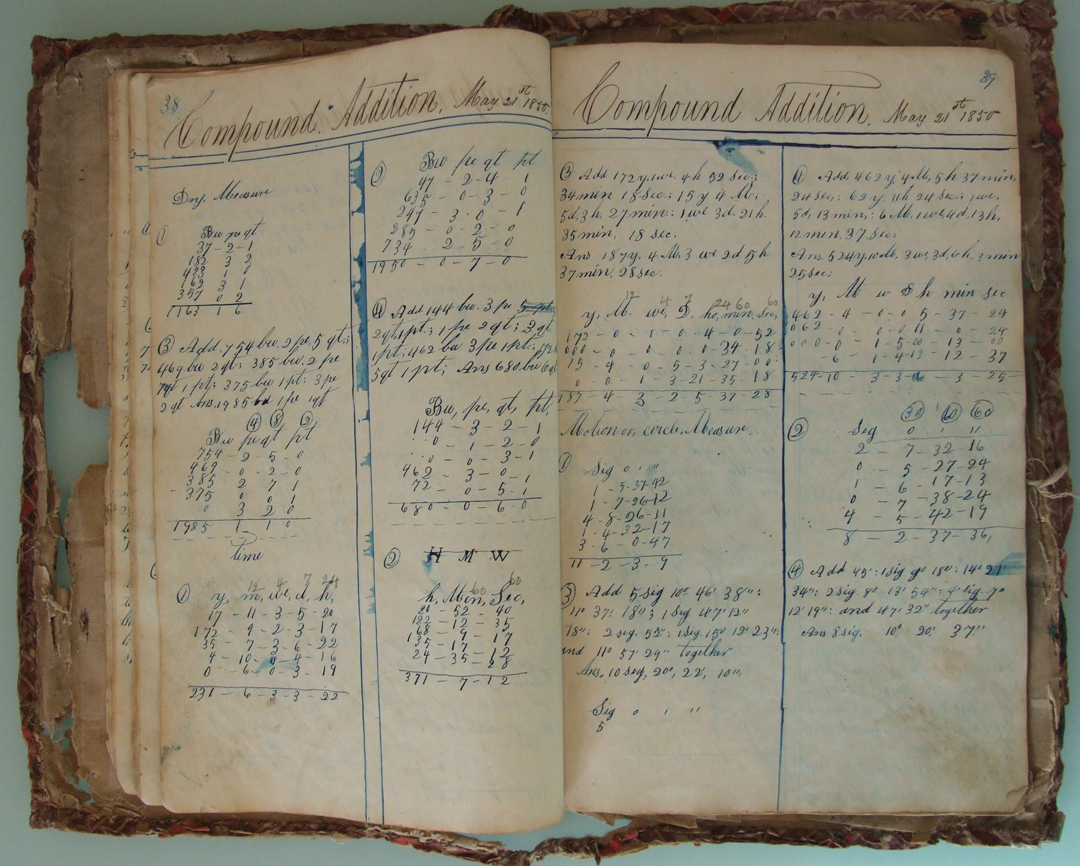 38
Compound Addition, May 21st 1850
Dry Measure
① Bu pe qt
37-2-1
182 3 2
163 3 1
357 0 2
1163 1 6
③ Add 754 bu. 2 pe, 5 qt,;
469 bu 2 qt; 385 bu. 2 pe
7qt 1 pt; 375 bu 1 pt; 3 pe
2 qt Ans. 1985 bu 1 pe 1qt
④ ⑧ ②
Bu pe qt pt
754-2-5-0
469 - 0-2-0
385 2 7 1
375 0 0 1
0 3 2 0
1985 1 1 0
Time
12 4 7 24
① y, m, we, d, h,
17-11-3-5-20
172-9-2-3-17
35-7-3-6-22
4-10-0-4-16
0-6-0-3-19
231-6-3-3-22
② Bu pe qt pt
47-2-4-1
635-0-3-0
247-3-0-1
285-0-2-0
734-2-5-0
1950-0-7-0
④ Add 144 bu. 3 pe
2qt, 1pt.; 1 pe 2 qt; 3 qt
1 pt; 462 bu 3 pe 1 pt;
5qt 1 pt; Ans 680 bu 6qt
Bu, pe, qt, pt,
144-3-2-1
0-1-2-0
0-0-3-1
462-3-0-1
72-0-5-1
680-0-6-0
② H M W
60 60
h, Min, Sec,
20-52-40
122-12-35
168-9-17
35-17-12
24-35-28
371-7-12
39
Compound Addition, May 21st 1850
③ Add 172 y, we, 4 h 52 sec;
34 min 18 sec; 15 y 4 M,
5d, 3h, 27 min; 1 we 3d, 21 h,
35 min, 18 sec.
Ans 187 y, 4 M, 3 we 2d 5h
37 min, 28 sec.
12 4 7 24 60 60
y, M, we, D, ho, min, sec,
172-0-1-0-4-0-52
000-0-0-0-0-34-18
15-4-0-5-3-27-00
0-0-1-3-21-35-18
187-4-3-2-5-37-28
Motion or, circle, Measure.
① Sig o ' "
1-5-37-42
1-7-26-12
4-8-26-11
1-4-32-17
3-6-0-47
11-2-3-9
③ Add 5 sig 10° 46' 38":
11° 37' 18"; 1 sig 4° 7' 12"
18": 2 sig. 52": 1 sig, 15° 12' 23":
and 11° 57' 29" together
Ans, 10 Sig, 20°, 22', 10",
Sig o ' "
5
① Add 462 y, 4 M, 5 h 37 min,
24 sec; 62 y 11h 24 sec; 1 we,
5d, 13 min,; 6 M, 1 we 4d, 13h,
12 min, 37 sec.
Ans, 524 y, 10 M, 3 w, 3d, 6h, 3 min
25 sec;
y, M w D h min sec
462-4-0-0 5-37-24
062-0-0-0 11-0-24
000-0-1-5-00-13-00
6-1-4 13-12-37
524-10-3-3-6-3-25
② 30 60 60
Sig o ' "
2-7-32-16
0-5-27-24
1-6-17-13
0-7-38-24
4-5-42-19
8-2-37-36,
④ Add 45': 1 sig 9° 18": 14° 21'
34": 2 sig 8° 13' 54": 4 sig 7°
12' 19": and 47' 32" together
Ans 8 sig, 10° 20' 37"